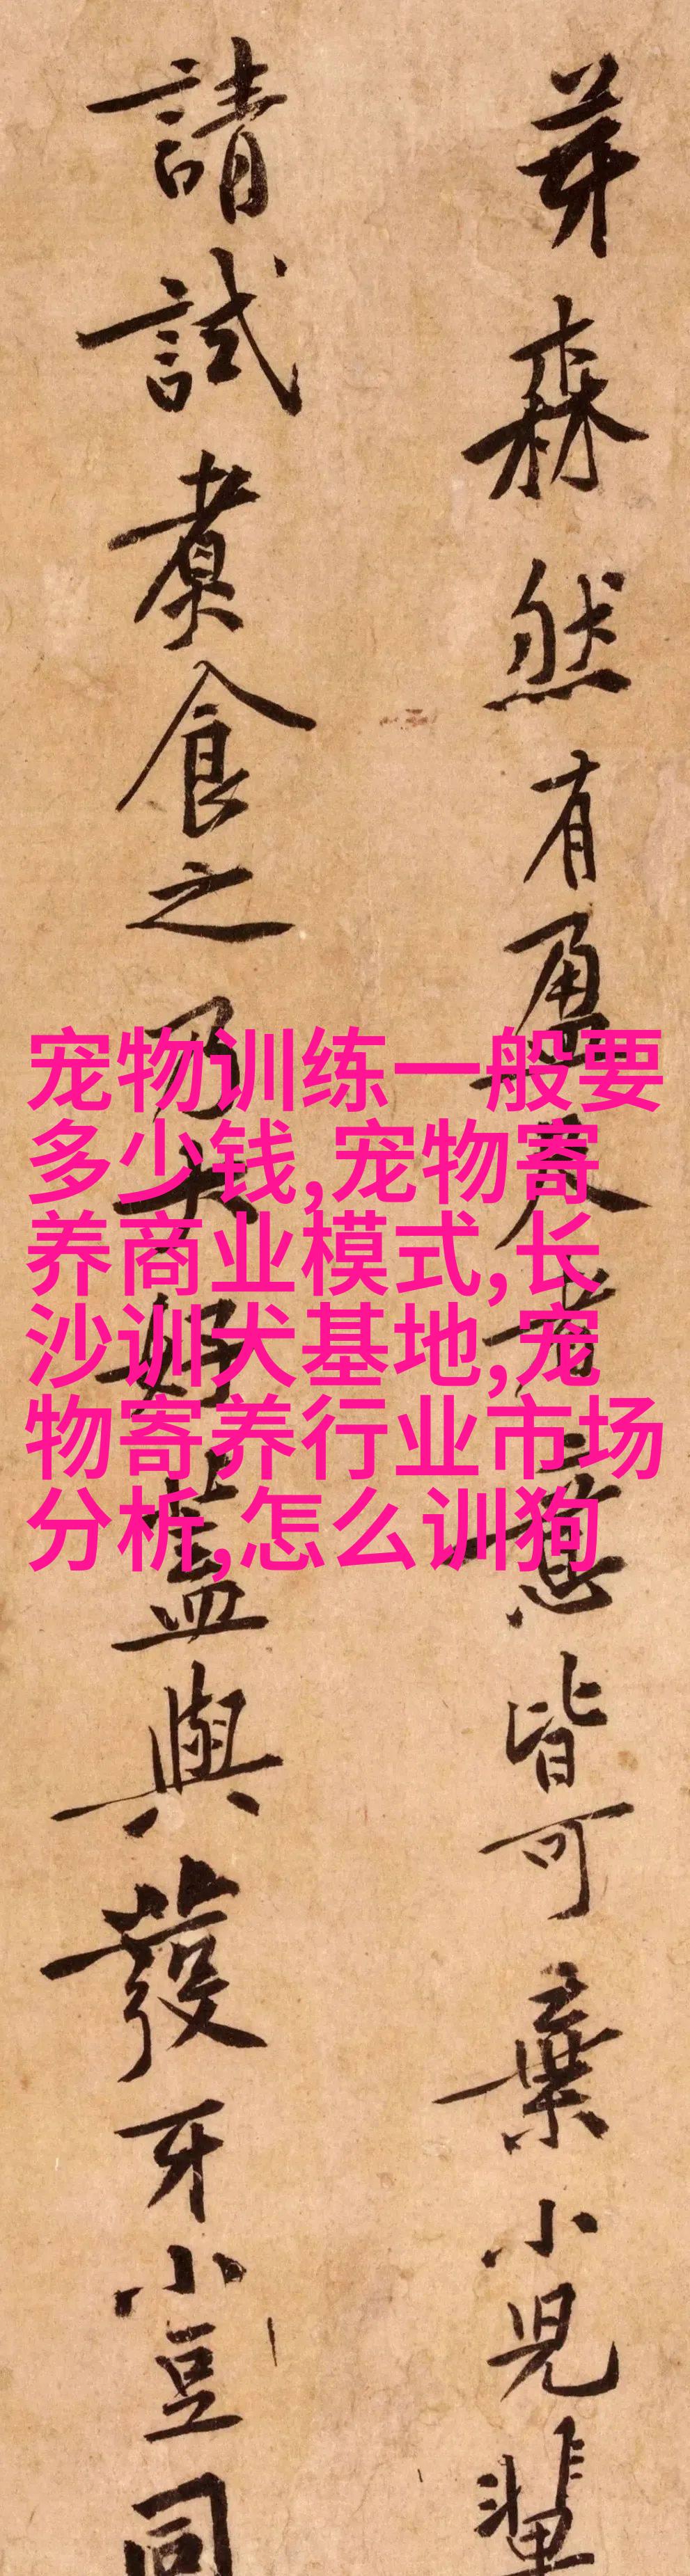 芽森然有盈尺者意皆可棄小児輩
請試煮食之乃大好蓋與發牙小豆同
宠物训练一般要
多少钱,宠物寄
养商业模式,长
沙训犬基地,宠
物寄养行业市场
分析,怎么训狗